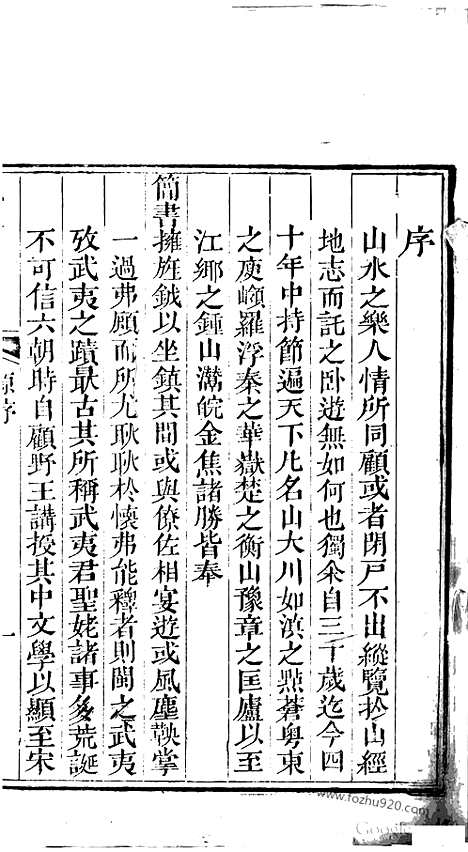 序
山水之樂人情所同顧或者閉戶不出縱覽於山經
地志而託之卧遊無如何也獨余自三十歲迄今四
十年中持節遍天下凡名山大川如滇之點蒼粤東
之庾嶺羅浮秦之華嶽楚之衡山豫章之匡廬以至
江鄉之鍾山灊皖金焦諸勝皆奉
簡書擁旌鉞以坐鎮其間或與僚佐相宴遊或風塵鞅掌
一過弗顧而所尤耿耿於懷弗能釋者則閩之武夷
攷武夷之蹟最古其所稱武夷君聖姥諸事多荒誕
不可信六朝時自顧野王講授其中文學以顯至宋
序
一
www.fozhu920.com
Google